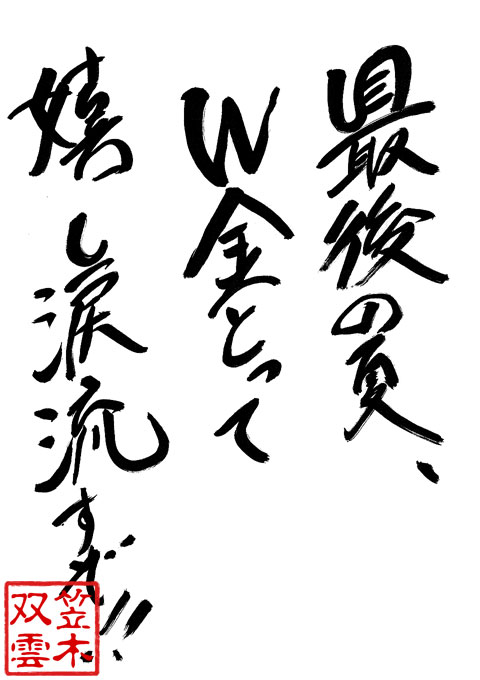 最後の夏、
W金とって
嬉し涙流すぜ!!
笠木
双雲